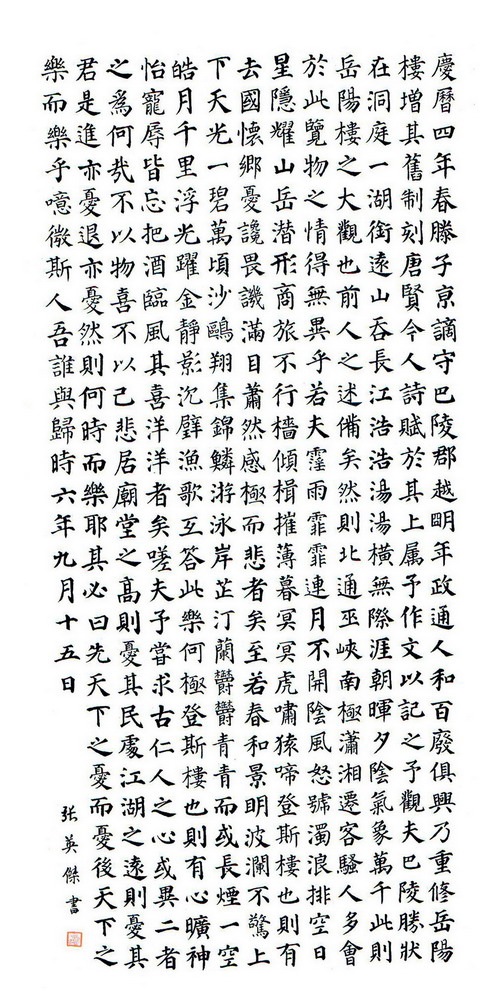 慶曆四年春滕子京謫守巴陵郡越明年政通人和百廢俱興乃重修岳陽
樓增其舊制刻唐賢今人詩賦於其上属予作文以記之予觀夫巴陵勝狀
在洞庭一湖銜遠山吞長江浩浩湯湯橫無際涯朝暉夕陰氣象萬千此則
岳陽樓之大觀也前人之述備矣然則北通巫峽南極瀟湘遷客騷人多會
於此覽物之情得無異乎若夫霪雨霏霏連月不開陰風怒號濁浪排空日
星隱耀山岳潛形商旅不行檣傾楫摧薄暮冥冥虎嘯猿啼登斯樓也則有
去國懷鄉憂讒畏譏滿目蕭然感極而悲者矣至若春和景明波瀾不驚上
下天光一碧萬頃沙鷗翔集錦鱗游泳岸芷汀蘭欝欝青青而或長煙一空
皓月千里浮光躍金靜影沉璧漁歌互答此樂何極登斯樓也則有心曠神
怡寵辱皆忘把酒臨風其喜洋洋者矣嗟夫予嘗求古仁人之心或異二者
之爲何哉不以物喜不以己悲居廟堂之高則憂其民處江湖之遠則憂其
君是進亦憂退亦憂然則何時而樂耶其必曰先天下之憂而憂後天下之
樂而樂乎噫微斯人吾誰與歸時六年九月十五日
張英傑書